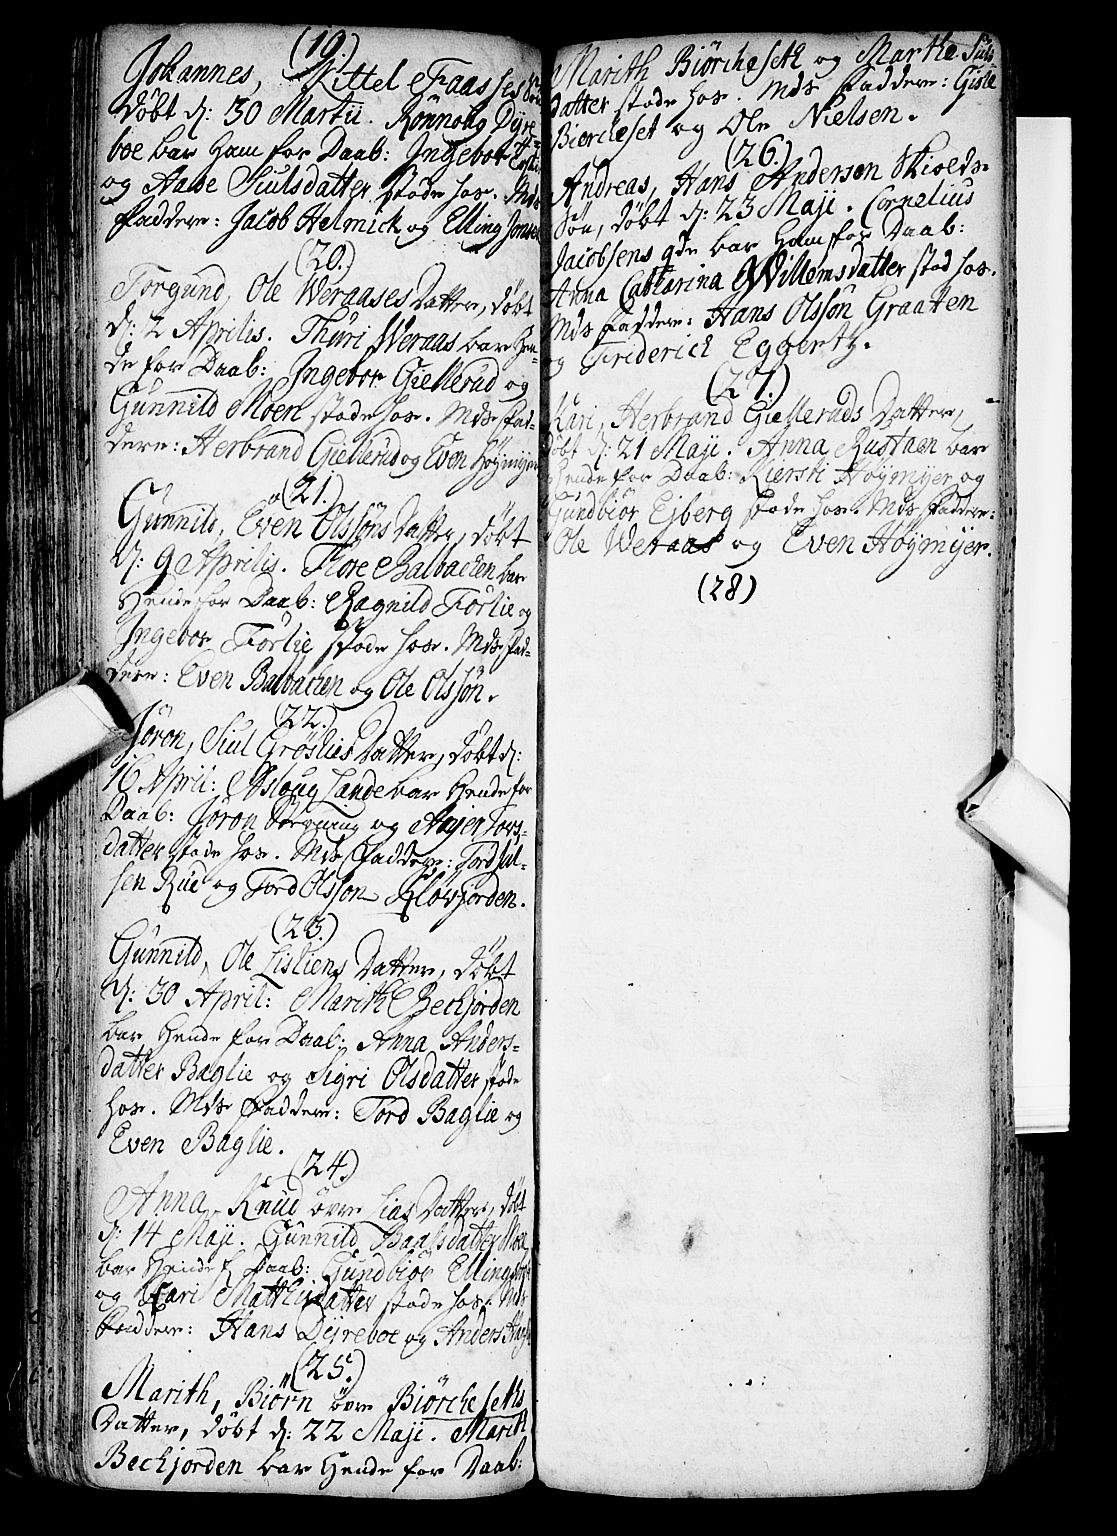 (19.)
Johannes, Kittel Traasses Søn
døbt d: 30 Martii. Rönnoug Dÿre-
boe bar Ham for Daab: Ingebor
og Aase Siulsdatter stode hos. Mds
Faddere: Jacob Helmick og Elling Jonsen
(20.)
Torgund, Ole Weraases Datter, døbt
d: 2 Aprilis. Thuri Weraas bar Hen-
de for Daab: Ingebor Giellerud og
Gunnild Moen stode hos. Mds Fad-
dere: Herbrand Giellerud og Even Höÿmÿer
(21.)
Gunnild, Even Olssöns Datter, døbt
d: 9 Aprilis. Flore Balbachen bar
Hende for Daab: Ragnild Förlie og
Ingebor Förlie stode hos. Mds Fad-
dere: Even Balbachen og Ole Olssön.
(22.)
Jöron, Siul Gröslies Datter, døbt d:
16 April: Asloug Lande bar Hende for
Daab: Jöron og Anjer Tors-
datter stode hos. Mds Faddere: Tord Jul-
sen Rue og Tord Olsson Kløvjorden.
(23.)
Gunnild, Ole Lisliens Datter, døbt
d: 30 April: Marith Bechjorden
bar Hende for Daab: Anna Anders-
datter Baglie og Sigri Olsdatter stode
hos. Mds Faddere: Tord Baglie og
Even Baglie.
(24.)
Anna, Knud övre Lias Datter, døbt
d: 14 Maji. Gunnild Baalsdatter Moen
bar Hende f. Daab: Gundbiör Elling
og Kari Matthisdatter stode hos. Mds
Faddere: Hans Dÿreboe og Anders
(25.)
Marith, Biörn övre Biörcheseths
Datter, døbt d: 22 Maji. Marith
Bechjorden bar Hende for Daab:
Marith Biörcheseth og Marthe Siuls-
datter stode hos. Mds Faddere: Gisle
Biörcheset og Ole Nielsen.
(26.)
Andreas, Hans Andersen Skieds-
Søn, døbt d: 23 Maji. Cornelius
Jacobsens qde bar Ham for Daab:
Anna Catharina Willemsdatter stod hos.
Mds Faddere: Hans Olssön Graaten
og Friderich Eggertz.
(27.)
Kari, Herbrand Gielleruds Datter,
døbt d: 21 Maji. Anna Rustaen bar
Hende for Daab: Kiersti Höÿmÿer og
Gundbiör Ejberg stode hos. Mds Faddere:
Ole Weraas og Even Höÿmÿer.
(28)